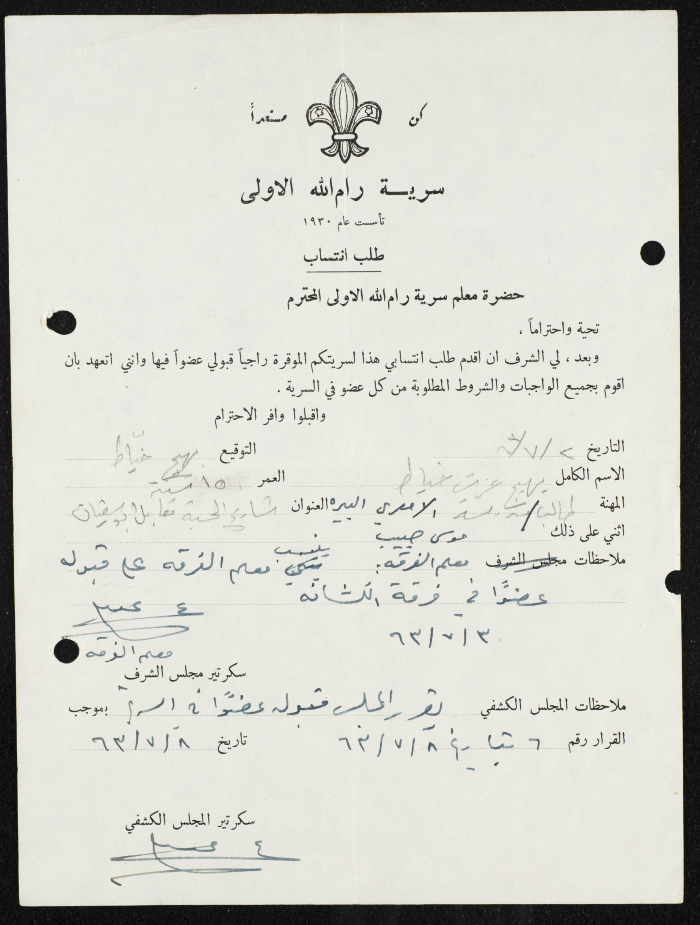 كن مستعداً
سريــة رام الله الاولى
تأسست عام ١٩٣٠
طلب انتساب
حضرة معلم سرية رام الله الاولى المحترم
تحية واحتراماً ،
وبعد ، لي الشرف ان اقدم طلب انتسابي هذا لسريتكم الموقرة راجياً قبولي عضواً فيها وانني اتعهد بان
اقوم بجميع الواجبات والشروط المطلوبة من كل عضو في السرية .
واقبلوا وافر الاحترام
التاريخ ٢/٧/٦٣ التوقيع بهيج خيّاط
الاسم الكامل بهيج عزت خياط العمر ١٥ سنة
المهنة طالب / مدرسة الامعري البيره العنوان شارع الحسبة مقابل ابو سفيان
اثني على ذلك موسى حبيب
ملاحظات مجلس الشرف معلم الفرقة: ينسب معلم الفرقه على قبوله
عضوًا في فرقة الكشافه
٦٣/٧/٣
معلم الفرقه
سكرتير مجلس الشرف
ملاحظات المجلس الكشفي يقرر المجلس قبوله عضوًا في السرية بموجب
القرار رقم ٦ بتاريخ ٦٣/٧/٨ تاريخ ٦٣/٧/٨
سكرتير المجلس الكشفي